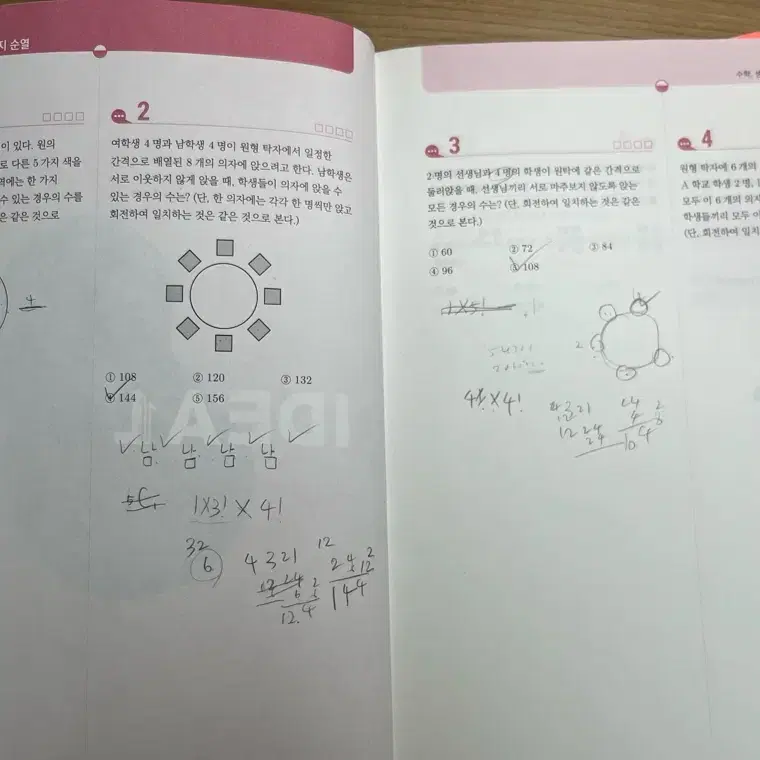 지 순열
이 있다. 원의
로 다른 5가지 색을
역에는 한 가지
수 있는 경우의 수를
은 같은 것으로
4
2
여학생 4명과 남학생 4명이 원형 탁자에서 일정한
간격으로 배열된 8개의 의자에 앉으려고 한다. 남학생은
서로 이웃하지 않게 앉을 때, 학생들이 의자에 앉을 수
있는 경우의 수는? (단, 한 의자에는 각각 한 명씩만 앉고
회전하여 일치하는 것은 같은 것으로 본다.)
① 108 ② 120 ③ 132
④ 144 ⑤ 156
IDEA
남 남 남 남
1×3! × 4!
32
6
4 3 2 1
12
24
12
144
수학, 영
3
2명의 선생님과 4명의 학생이 원탁에 같은 간격으로
둘러앉을 때, 선생님끼리 서로 마주보지 않도록 앉는
모든 경우의 수는? (단, 회전하여 일치하는 것은 같은
것으로 본다.)
① 60 ② 72 ③ 84
④ 96 ⑤ 108
1×5!
2
×4!
4
원형 탁자에 6개의
A 학교 학생 2명,
모두 이 6개의 의자
학생들끼리 모두 이
(단, 회전하여 일치